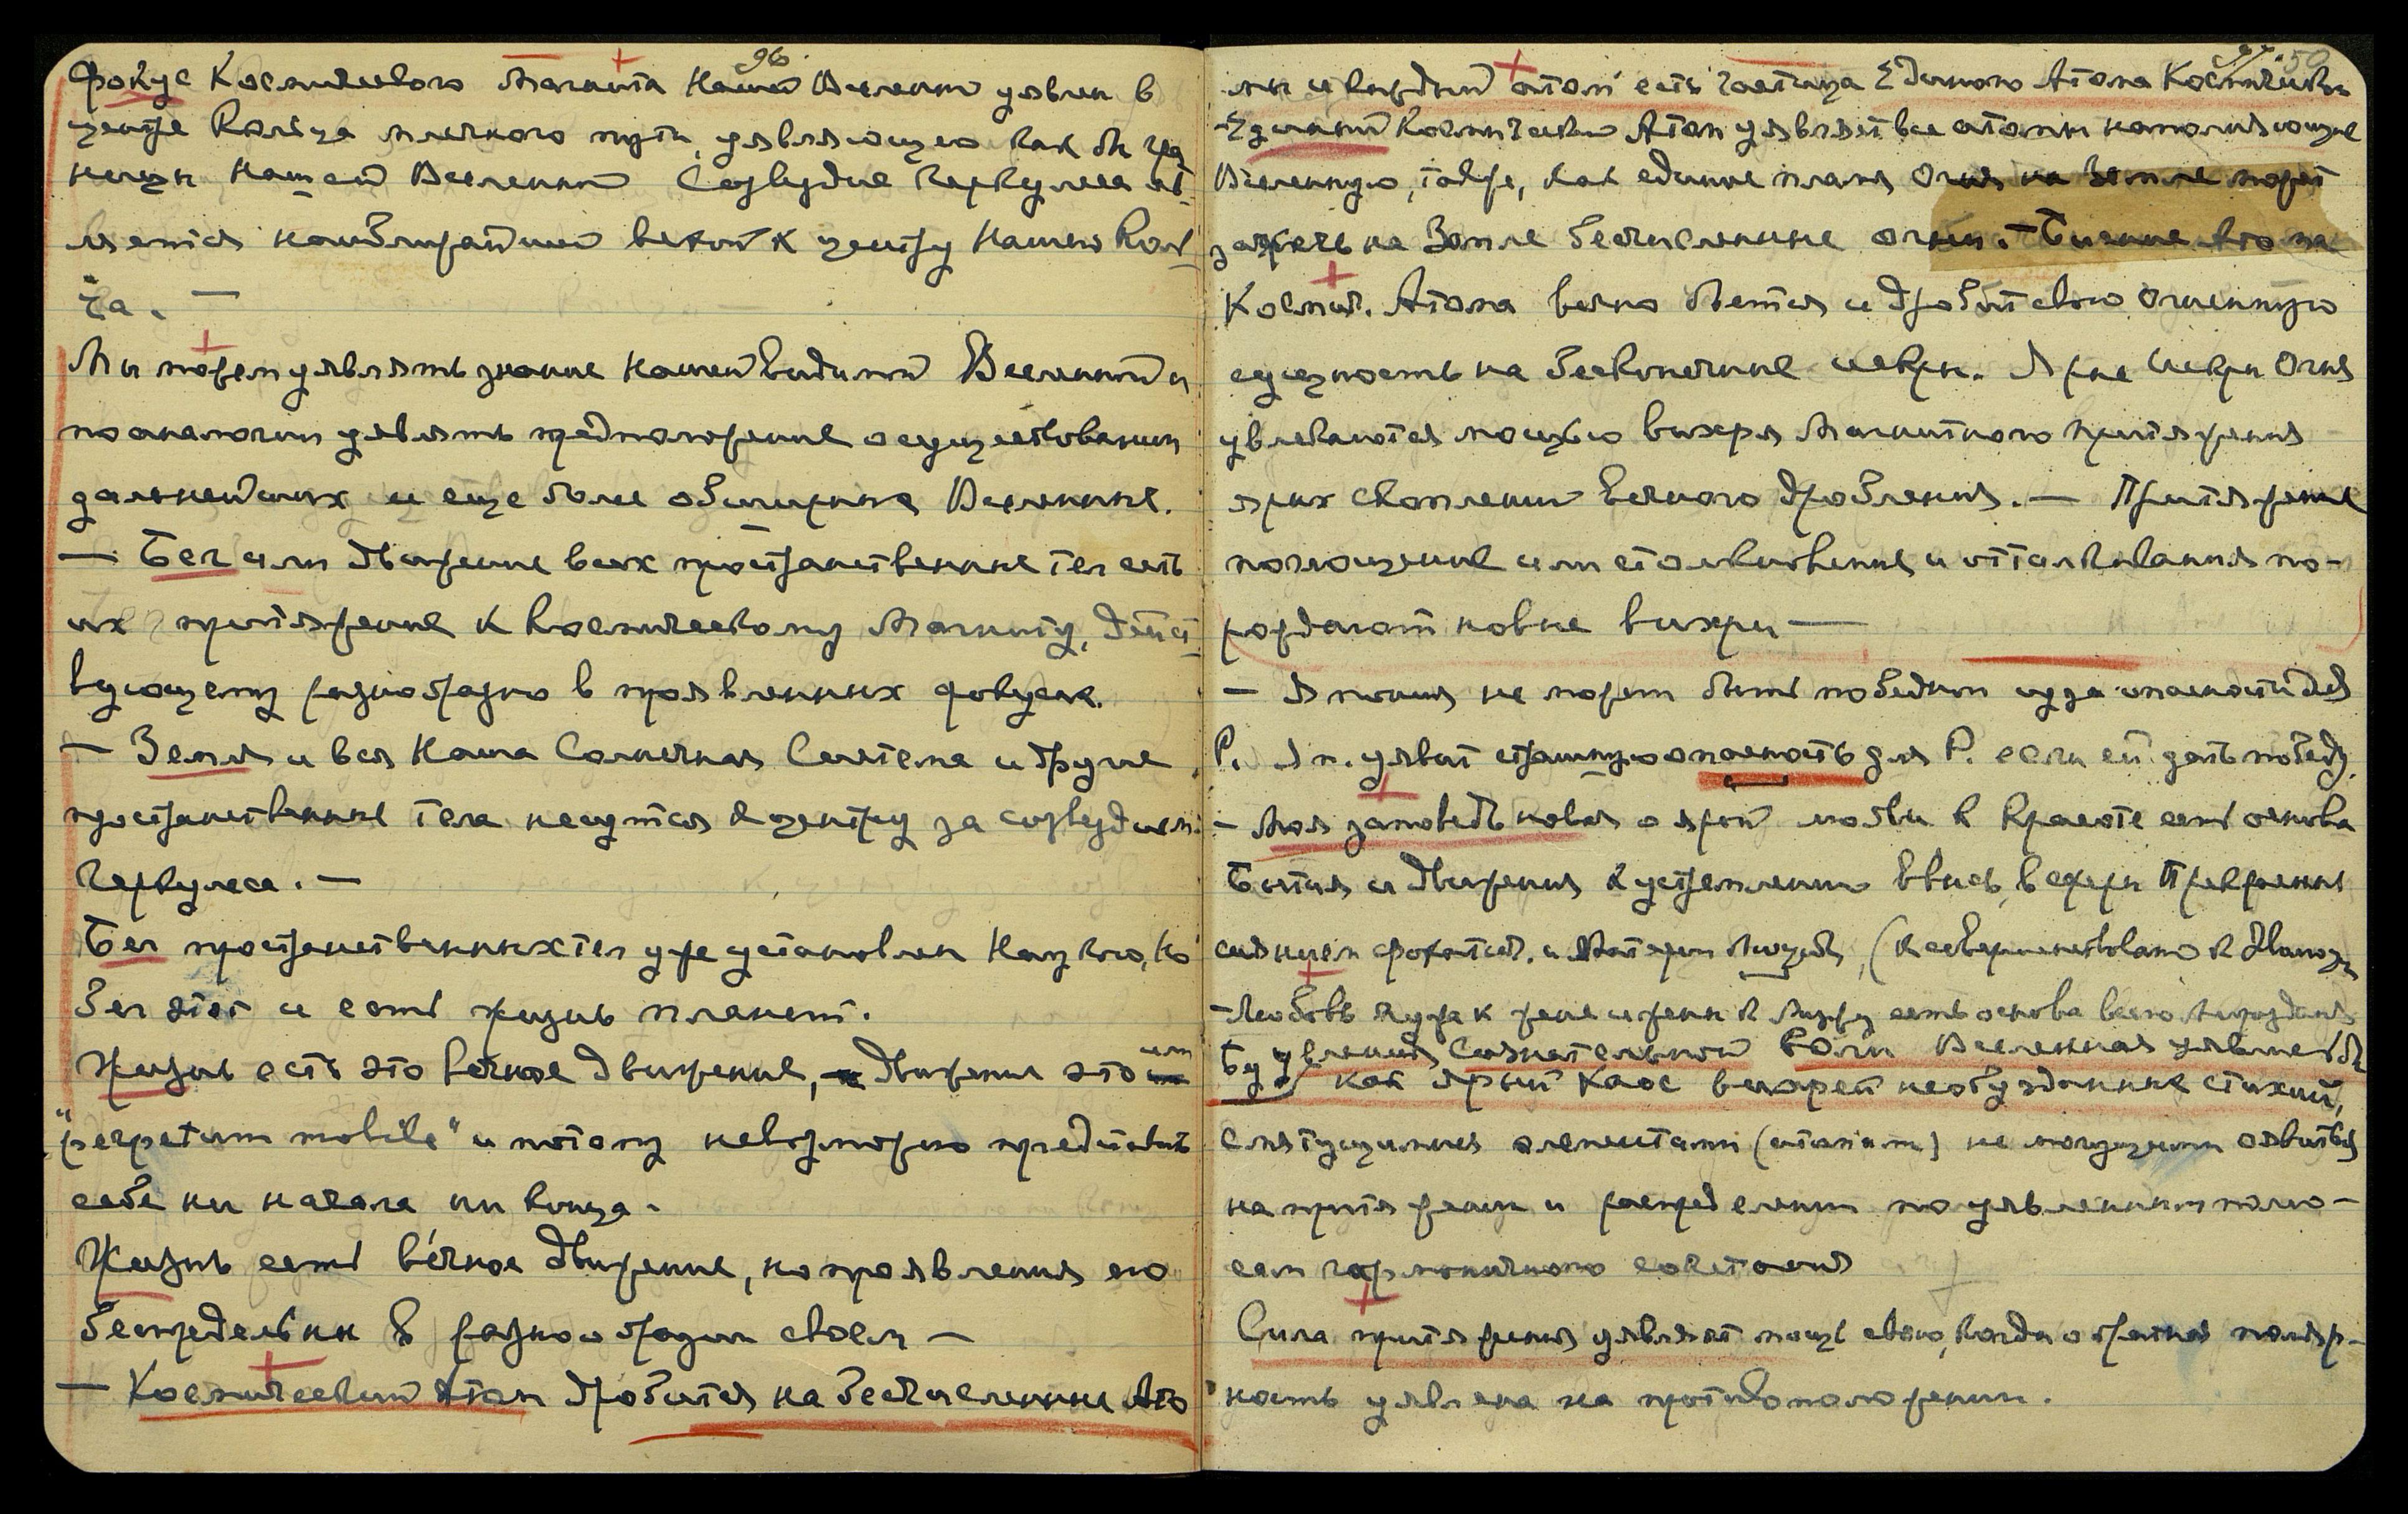 96
Фокус Космического Магнита Нашей Вселенной уявлен в
центре Кольца млечного пути, уявляющего как бы гра
ницы Нашей Вселенной Созвездие Геркулеса яв
ляется наиближайшей вехой к центру Нашего Коль
ца. —
Мы можем уявлять знание нашей видимой Вселенной и
по аналогии уявлять предположение о существовании
дальнейших и еще более обширных Вселенных.
— Бег или движение всех пространственных тел есть
их притяжение к Космическому Магниту, дейст
вующему разнообразно в проявленных фокусах.
— Земля и вся Наша Солнечная Система и другие
пространственные тела несутся к центру за созвездием
Геркулеса. —
Бег пространственных тел уже установлен Наукою, но
бег этот и есть жизнь планет.
Жизнь есть это вечное движение, движение это или
"perpetum mobile" и потому невозможно представить
себе ни начала ни конца.
Жизнь есть вечное движение, но проявления его
беспредельны в разнообразии своем —
— Космический Атом дробится на бесчисленные Ато
97. 50
мы и каждый атом есть частица Единого Атома Космическ.
— Единый Космический Атом уявляет все атомы наполняющие
Вселенную, также, как единое пламя Огня на Земле может
зажечь на Земле бесчисленные огни. — Биение Атома
Космич. Атома вечно бьется и дробит свою огненную
сущность на бесконечные искры. Ярые Искры Огня
увлекаются мощью вихря Магнитного притяжения
ярых скоплений вечного дробления. — Притяжение
поглощение или столкновение и отталкивания по-
рождают новые вихри —
— Япония не может быть победной из за опасности для
Р. Яп. уявит страшную опасность для Р. если ей дать победу.
— Моя заповедь новая о ярой любви к Красоте есть основа
Бытия и движения к устремлению ввысь, в сферы Прекрасные
Материи (к совершенствованию
— Любовь Мужа к жене и жены к Мужу есть основа всего Мироздания
Без уявления Сознательной Воли Вселенная уявлена бы
была как ярый Хаос вихрей необузданных стихий,
с мятущимися элементами (атомами) не могущими оявиться
на притяжении и распределении по уявленным полю-
сам гармоничного сочетания
Сила притяжения уявляет мощь свою, когда обратная поляр-
ность уявлена на противоположении.